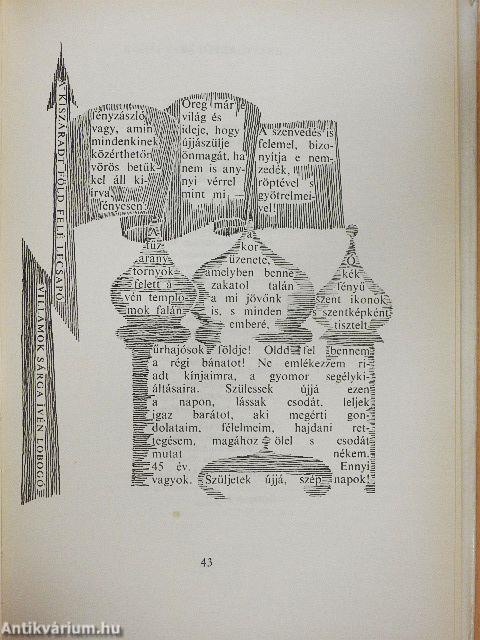 A KISZÁRADT FÖLD FELÉ LECSAPÓ
VILLÁMOK SÁRGA ÍVÉN LOBOGÓ
fényzászló
vagy, amin
mindenkinek
közérthetőn
vörös betűk-
kel áll ki-
írva
fényesen:
Öreg már a
világ és
ideje, hogy
újjászülje
önmagát, ha
nem is any-
nyi vérrel
mint mi —
A szenvedés is
felemel, bizo-
nyítja e nem-
zedék,
röptével s
gyötrelmei-
vel!
A
tűz
arany
tornyok
felett a
vén templo-
mok falán
a
kor
üzenete,
amelyben benne
zakatol talán
a mi jövőnk
is, s minden
emberé,
Ó
kék
fényű
szent ikonok
s szentképként
tisztelt
űrhajósok földje! Oldd fel bennem
a régi bánatot! Ne emlékezzem ri-
adt kínjaimra, a gyomor segélyki-
áltásaira. Szülessek újjá ezen
a napon, lássak csodát, leljek
igaz barátot, aki megérti gon-
dolataim, félelmeim, hajdani ret-
tegésem, magához ölel s csodát
mutat nékem.
45 év. Ennyi
vagyok. Szüljetek újjá, szép napok!
43
Antikvárium.hu